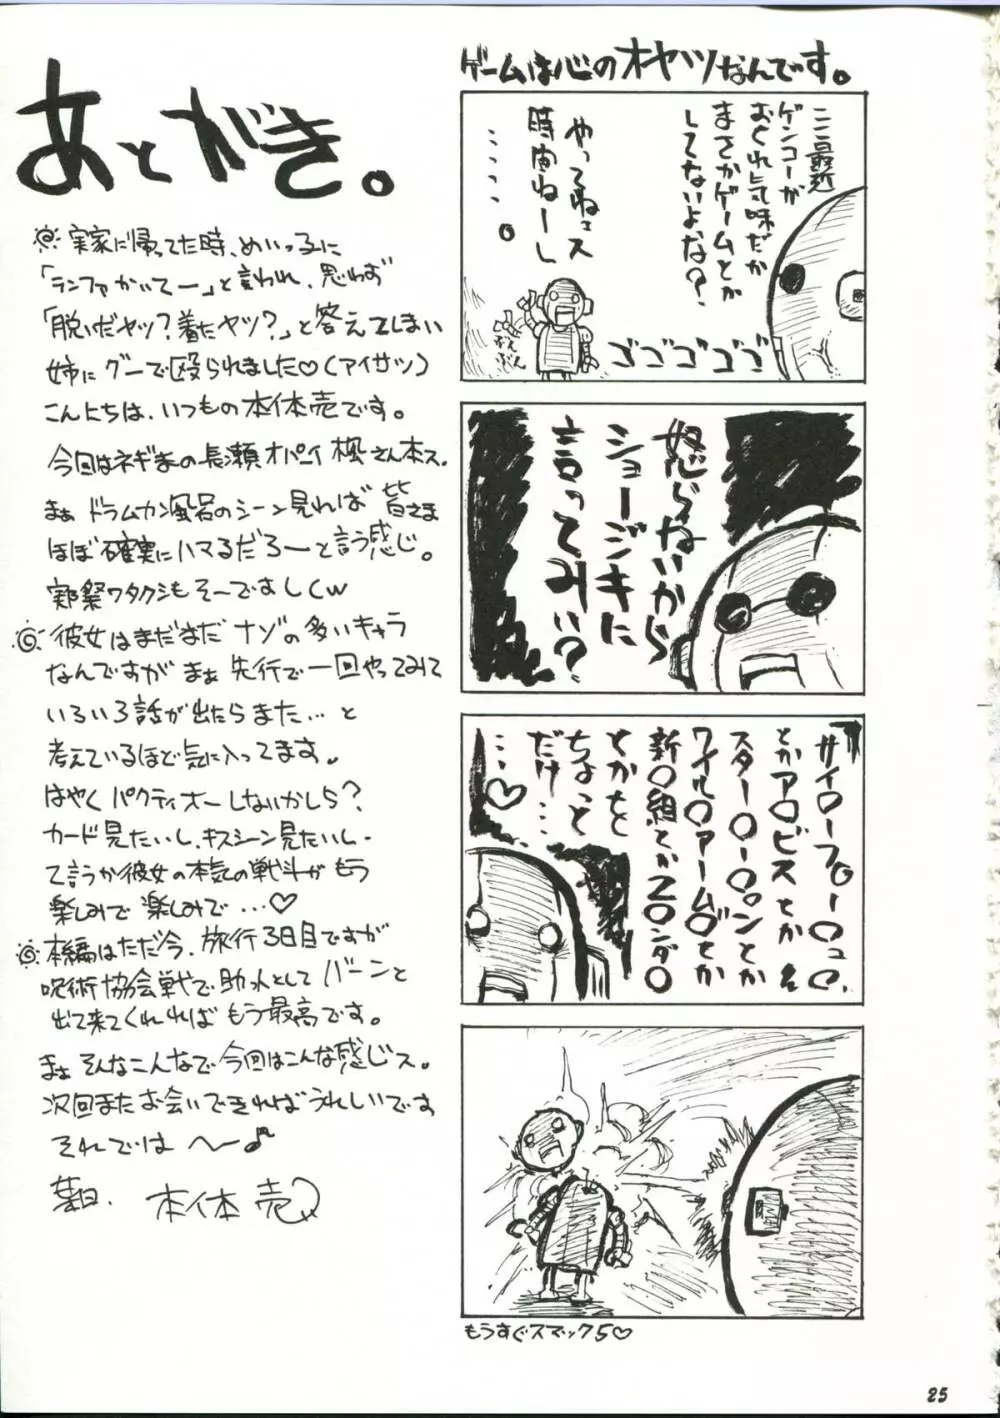 あとがき。
実家に帰ってた時、めいっ子に
「ランファかいてー」と言われ、思わず
「脱いだヤツ?着たヤツ?」と答えてしまい
姉にグーで殴られました♡(アイサツ)
こんにちは、いつもの本体売です。
今回はネギまの長瀬オパーイ楓さん本ス。
まぁドラムカン風呂のシーン見れば皆さま
ほぼ確実にハマるだろーと言う感じ。
実際ワタクシもそーですしw
彼女はまだまだナゾの多いキャラ
なんですがまぁ先行で一回やってみて
いろいろ話が出たらまた…と
考えているほど気に入ってます。
はやくパクティオーしないかしら?
カード見たいし、キスシーン見たいし
て言うか彼女の本気の戦斗がもう
楽しみで楽しみで…♡
本編はただ今、旅行3日目ですが
呪術協会戦で助っ人としてバーンと
出て来てくれればもう最高です。
まぁそんなこんなで今回はこんな感じス。
次回またお会いできればうれしいです
それではへ〜♪
草日. 本体売
ゲームは心のオヤツなんです。
ここ最近
ゲンコーが
おくれ気味だか
まさかゲームとか
してないよな?
やってねェス
時間ねーし
……。
ぶんぶん
ゴゴゴゴゴ
怒らないから
ショージキに
言ってみい?
サイ○ーフ○ー○ュ○、
とかア○ビスとか
スター○ー○ンとか
ワイル○アーム○とか
新○組とかZ○ンダ○
とかをちょっと
だけ……
…♡
もうすぐスマック5♡
25